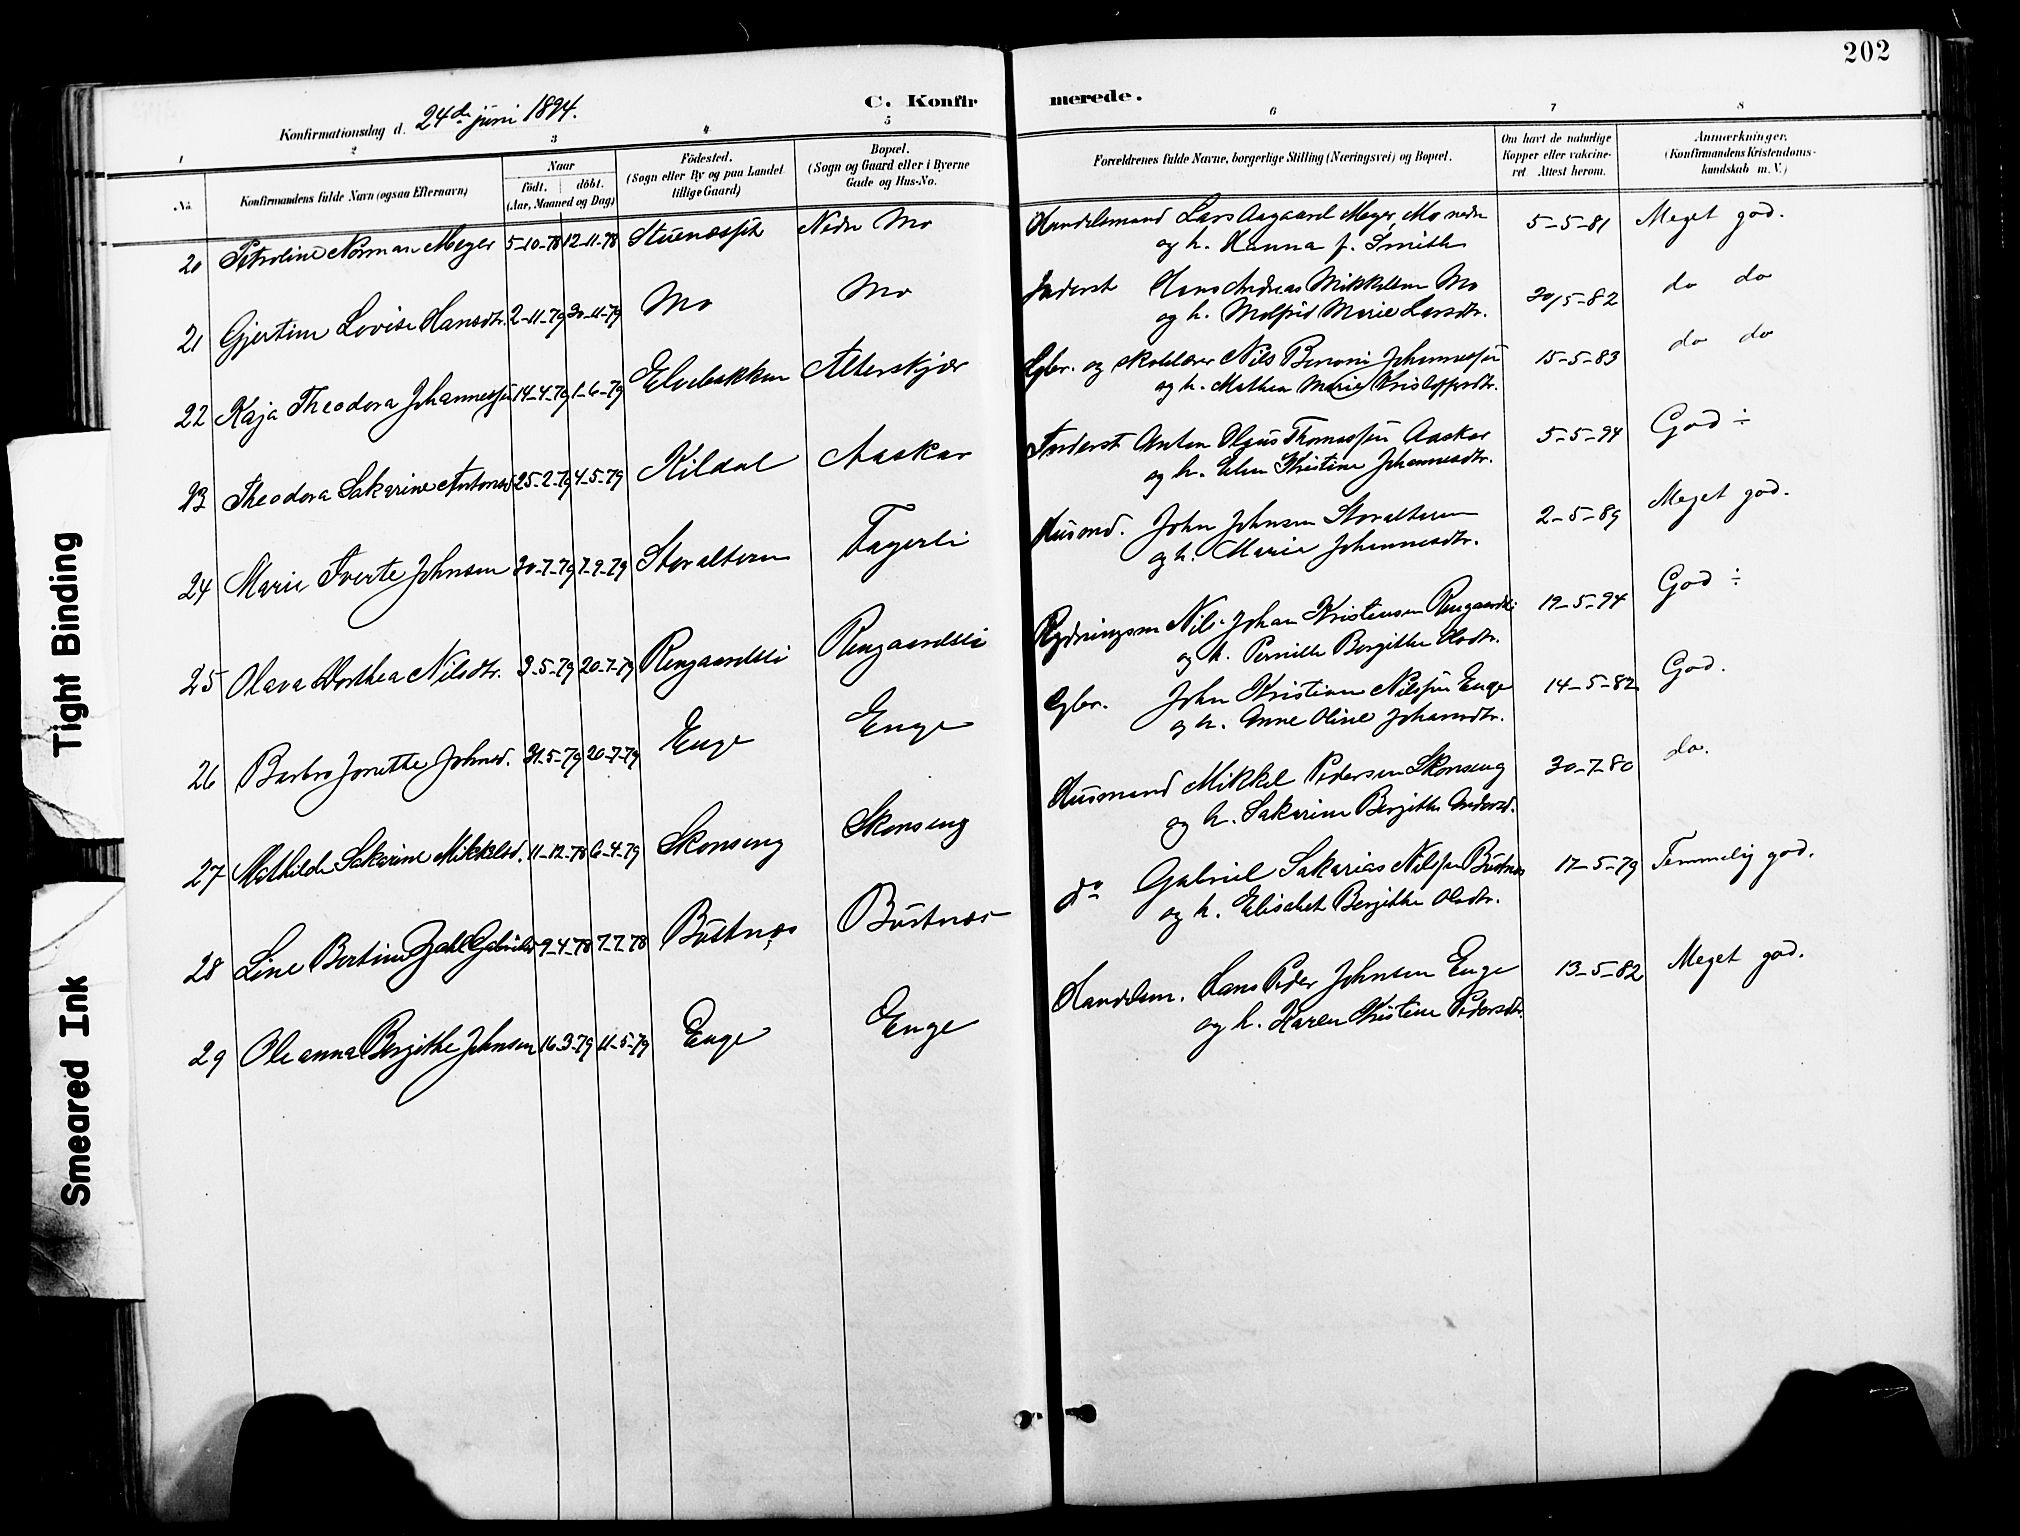 202
C. Konfirmerede.
Konfirmationsdag d. 24de juni 1894.
1 2 3 4 5 6 7 8
No. Konfirmandens fulde Navn (ogsaa Efternavn) Naar født. døbt. (Aar, Maaned og Dag) Fødested. (Sogn eller By og paa Landet tillige Gaard) Bopæl. (Sogn og Gaard eller i Byerne Gade og Hus-No. Forældrenes fulde Navne, borgerlige Stilling (Næringsvei) og Bopæl. Om havt de naturlige Kopper eller vakcineret. Attest herom. Anmærkninger, (Konfirmandens Kristendomskundskab m. V.)
20 Petroline Norman Meyer 5-10-78 12-11-78 Nedre Mo Handelsmand Lars Aagaard Meyer, Mo nedre 5-5-81 Meget god.
og h. Hanna f. Smith
21 Gjertine Lovise Hansdtr. 2-11-79 30-11-79 Mo Mo Inderst Hans Andreas Mikkelsen Mo 30/5-82 do do
og h. Malfrid Marie Larsdtr.
22 Kaja Theodora Johannessen 14-4-79 1-6-79 Elvebakken Alterskjær Gbr. og skolelærer Nils Benoni Johannessen 15-5-83 do do
og h. Mathea Marie Kristoffersdtr.
23 Theodora Sakarine Antonsd. 25-2-79 4-5-79 Kildal Aaskar Inderst Anton Olaus Thomassen Aaskar 5-5-94 God ÷
og h. Elen Kristine Johannesdtr.
24 Marie Iverte Johnsen 30-7-79 7-9-79 Storalteren Fagerli Husmd. John Johnsen Storalteren 2-5-89 Meget god.
og h. Marie Johannesdtr.
25 Olava Dorthea Nilsdtr. 3-5-79 20-7-79 Revgaardsli Revgaardsli Rydningsm Nils Johan Kristensen Revgaardsli 19-5-94 God ÷
og h. Pernille Bergithe Olsdtr.
26 Barbro Jonette Johnsd. 31-5-79 20-7-79 Enge Enge Gbr. John Kristian Nilssen Enge 14-5-82 God.
og h. Anne Oline Johansdtr.
27 Mathilde Sakarine Mikkelsd. 11-12-78 6-4-79 Skonseng Skonseng Husmand Mikkel Pedersen Skonseng 30-7-80 do.
og h. Sakarine Bergithe Andersd.
28 Line Bertine Zahl Gabrielsd 9-4-78 7-7-78 Bustnes Bustnes do Gabriel Sakarias Nilssen Bustnes 17-5-79 Temmelig god.
og h. Elisabet Bergithe Olsdtr.
29 Oleanna Bergithe Johnsen 16-3-79 11-5-79 Enge Enge Handelsm. Hans Peder Johnsen Enge 13-5-82 Meget god.
og h. Karen Kristine Pedersdtr.
Tight Binding
Smeared Ink